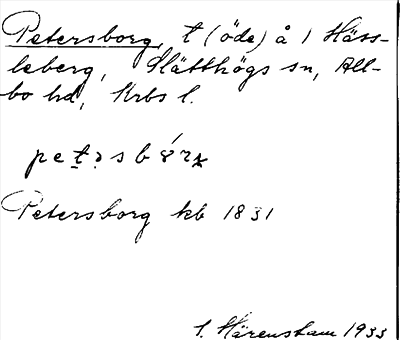 Petersborg, t (öde) å 1 Häss-
leberg, Slätthögs sn, All-
bo hd, Krbs l.
Petersborg kb 1831
S. Härenstam 1933